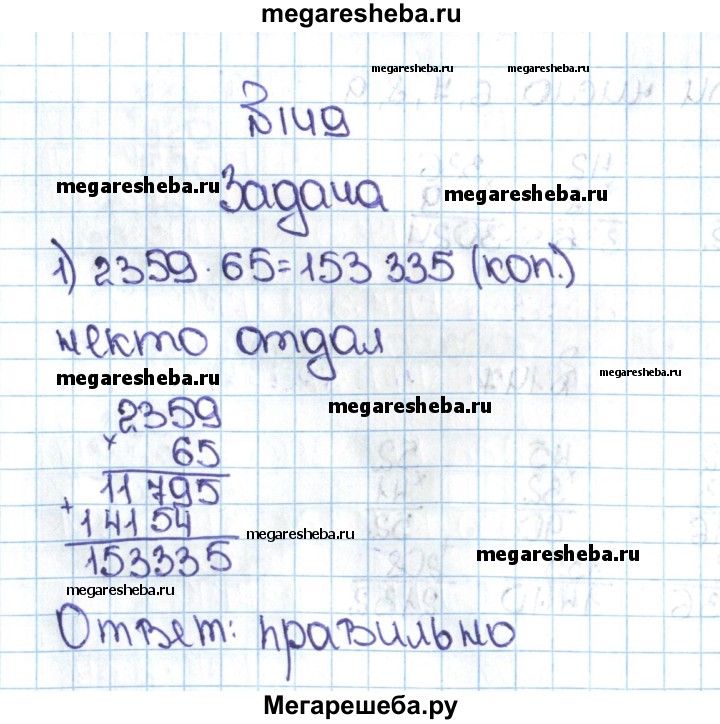 megaresheba.ru
megaresheba.ru megaresheba.ru
№149
megaresheba.ru
Задача
megaresheba.ru
1) 2359 · 65 = 153 335 (коп.)
некто отдал
megaresheba.ru
megaresheba.ru
megaresheba.ru
2359
× 65
11 795
+ 14154
153335
megaresheba.ru
megaresheba.ru
megaresheba.ru
Ответ: правильно
Мегарешеба.ру